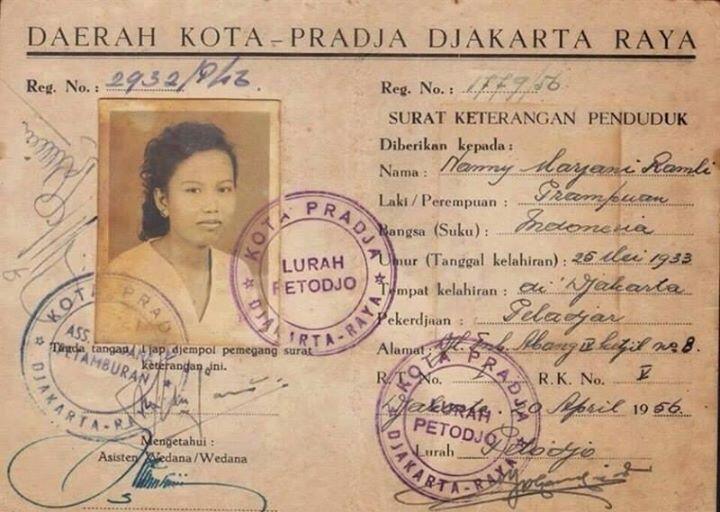 DAERAH KOTA-PRADJA DJAKARTA RAYA
Reg. No. : 2932/P/46.
Reg. No. : 1779/56
SURAT KETERANGAN PENDUDUK
Diberikan kepada :
Nama : Nanny Marjani Ramli
Laki / Perempuan : Prampuan
Bangsa (Suku) : Indonesia
Umur (Tanggal kelahiran) : 25 Mei 1933
Tempat kelahiran : di Djakarta
Pekerdjaan : Peladjar
Alamat : Abang IV ketjil no 8.
R.T. No. R.K. No. V
Djakarta, April 1956
Lurah Petodjo
KOTA PRADJA
LURAH
PETODJO
DJAKARTA-RAYA
KOTA PRADJA
ASS.
TAMBURAN
DJAKARTA-RAYA
Tanda tangan / tjap djempol pemegang surat
keterangan ini.
Mengetahui :
Asisten Wedana/Wedana
KOTA PRADJA
LURAH
PETODJO
DJAKARTA-RAYA